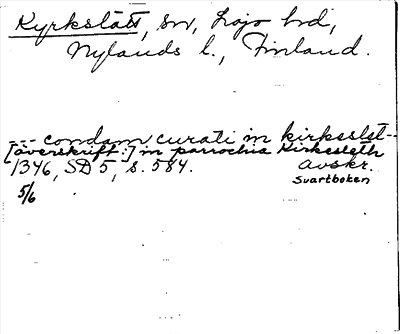 Kyrkslätt, sn, Lojo hd,
Nylands l., Finland.
--- condam curati in kirkeslet--
[överskrift:] in parrochia Kirkesleth
1346, SD 5, s. 584. Avskr.
Svartboken
5/6